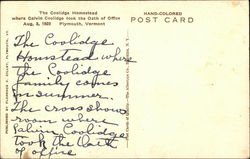 The Coolidge Homestead
where Calvin Coolidge took the Oath of Office
Aug. 3, 1923 Plymouth, Vermont
HAND-COLORED
POST CARD
The Coolidge
Homstead where
The Coolidge
family comes
for summer.
The cross shows
room where
Calvin Coolidge
took the Oath
of office